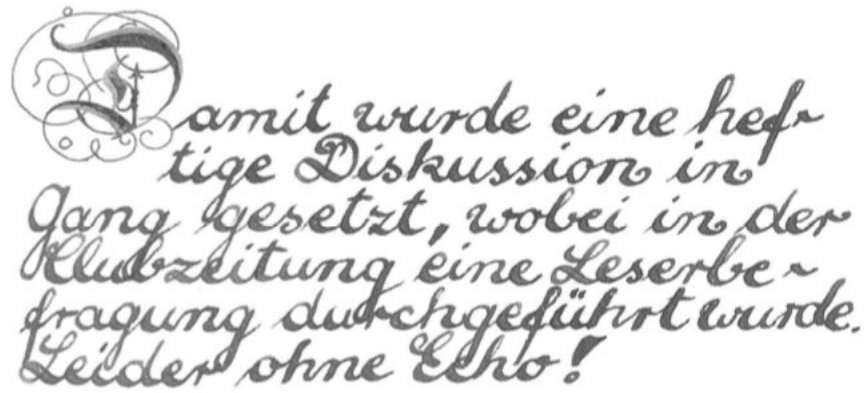 Damit wurde eine hef-
tige Diskussion in
Gang gesetzt, wobei in der
Klubzeitung eine Leserbe-
fragung durchgeführt wurde.
Leider ohne Echo!